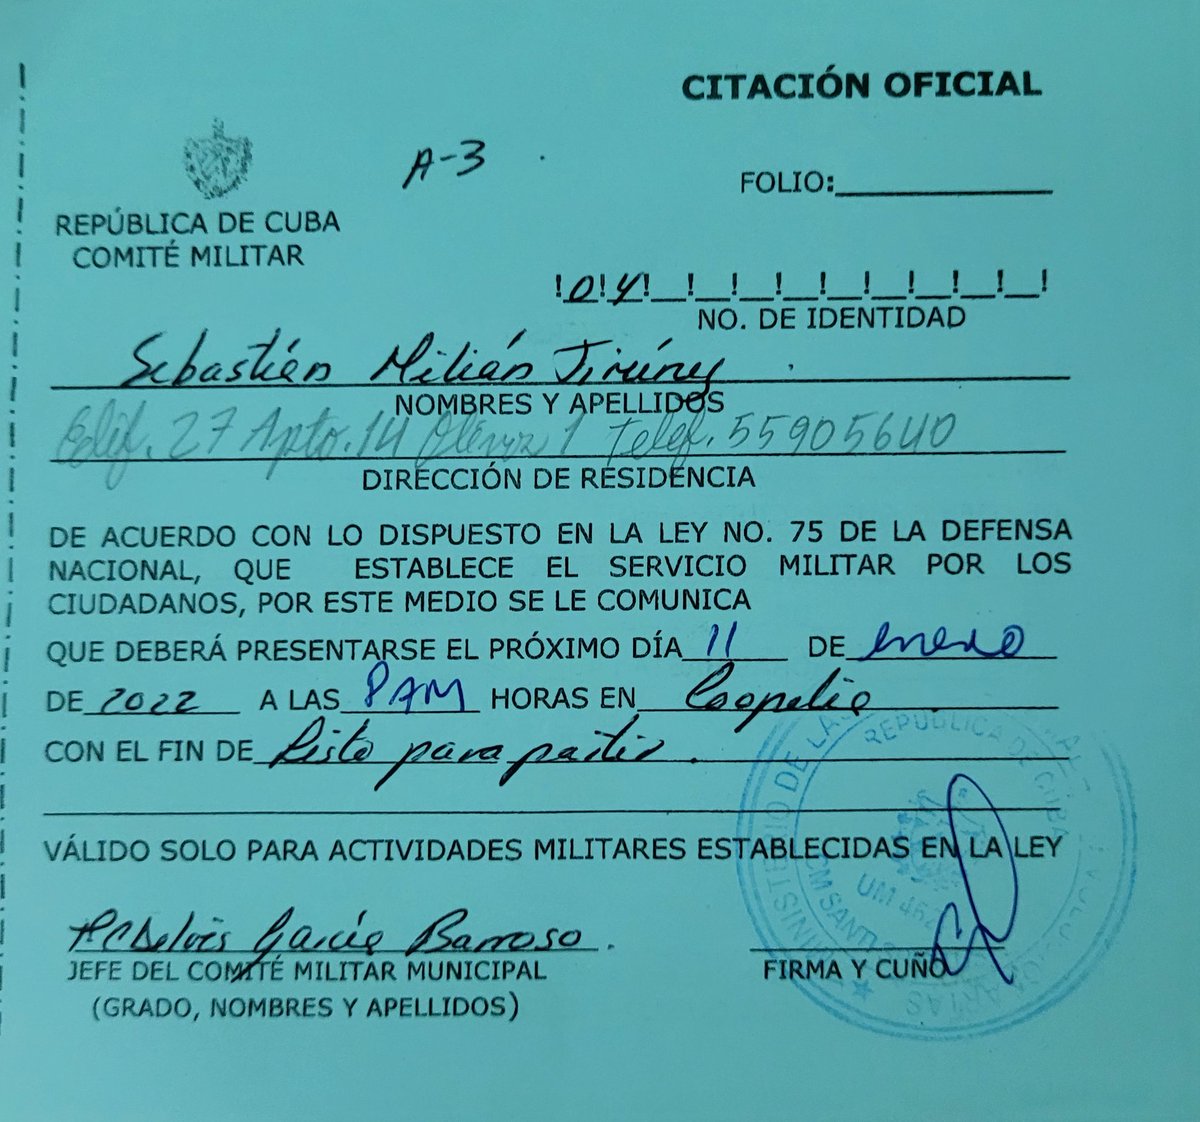 CITACIÓN OFICIAL
A-3
FOLIO:
REPÚBLICA DE CUBA
COMITÉ MILITAR
!0!4!__!__!__!__!__!__!__!__!__!
NO. DE IDENTIDAD
Sebastián Milián
NOMBRES Y APELLIDOS
Edif. 27 Apto. 14 1 Telef. 55905640
DIRECCIÓN DE RESIDENCIA
DE ACUERDO CON LO DISPUESTO EN LA LEY NO. 75 DE LA DEFENSA
NACIONAL, QUE ESTABLECE EL SERVICIO MILITAR POR LOS
CIUDADANOS, POR ESTE MEDIO SE LE COMUNICA
QUE DEBERÁ PRESENTARSE EL PRÓXIMO DÍA 11 DE enero
DE 2022 A LAS HORAS EN
CON EL FIN DE Listo para partir.
VÁLIDO SOLO PARA ACTIVIDADES MILITARES ESTABLECIDAS EN LA LEY
García Barroso.
JEFE DEL COMITÉ MILITAR MUNICIPAL
(GRADO, NOMBRES Y APELLIDOS)
FIRMA Y CUÑO
REPUBLICA DE CUBA